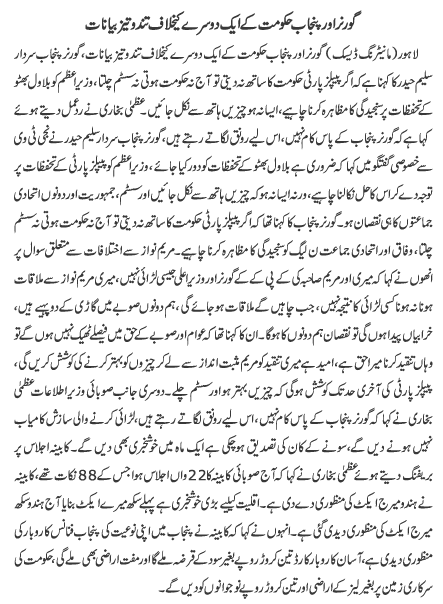 گورنر اور پنجاب حکومت کے ایک دوسرے کیخلاف تند و تیز بیانات
لاہور (مانیٹرنگ ڈیسک) گورنر اور پنجاب حکومت کے ایک دوسرے کیخلاف تند و تیز بیانات، گورنر پنجاب سردار
سلیم حیدر کا کہنا ہے کہ اگر پیپلز پارٹی حکومت کا ساتھ نہ دیتی تو آج نہ حکومت ہوتی نہ سسٹم چلتا، وزیراعظم کو بلاول بھٹو
کے تحفظات پر سنجیدگی کا مظاہرہ کرنا چاہیے، ورنہ ایسا نہ ہو چیزیں ہاتھ سے نکل جائیں۔ عظمیٰ بخاری نے ردعمل دیتے ہوئے
کہا ہے کہ گورنر پنجاب کے پاس کام نہیں، اس لیے رونق لگاتے رہتے ہیں، گورنر پنجاب سردار سلیم حیدر نے نجی ٹی وی
سے خصوصی گفتگو میں کہا کہ ضروری ہے بلاول بھٹو کے تحفظات کو دور کیا جائے، وزیراعظم کو پیپلز پارٹی کے تحفظات پر
توجہ دے کر اس کا حل نکالنا چاہیے، ورنہ ایسا نہ ہو کہ چیزیں ہاتھ سے نکل جائیں اور سسٹم، جمہوریت اور دونوں اتحادی
جماعتوں کا ہی نقصان ہو۔ گورنر پنجاب کا کہنا تھا کہ اگر پیپلز پارٹی حکومت کا ساتھ نہ دیتی تو آج نہ حکومت ہوتی نہ سسٹم
چلتا، وفاق اور اتحادی جماعت ن لیگ کو سنجیدگی کا مظاہرہ کرنا چاہیے۔ مریم نواز سے اختلافات سے متعلق سوال پر
انھوں نے کہا کہ میری اور مریم صاحبہ کی کے پی کے کے گورنر اور وزیراعلیٰ جیسی لڑائی نہیں، میری مریم نواز سے ملاقات
ہونا نہ ہونا کسی لڑائی کا نتیجہ نہیں، جب چاہیں گے ملاقات ہو جائے گی، ہم دونوں صوبے میں گاڑی کے دو پہیے ہیں،
خرابیاں پیدا ہوں گی تو نقصان ہم دونوں کا ہو گا۔ ان کا کہنا تھا کہ عوام اور صوبے کے حق میں فیصلے ٹھیک نہیں ہوں گے تو
وہاں تنقید کرنا میرا حق ہے، امید ہے میری تنقید کو مریم مثبت انداز سے لے کر چیزوں کو بہتر کرنے کی کوشش کریں گی،
پیپلز پارٹی کی آخری حد تک کوشش ہو گی کہ چیزیں بہتر ہوں اور سسٹم چلے۔ دوسری جانب صوبائی وزیر اطلاعات عظمیٰ
بخاری نے کہا ہے کہ گورنر پنجاب کے پاس کام نہیں، اس لیے رونق لگاتے رہتے ہیں، لڑائی کرنے والی سازش کامیاب
نہیں ہونے دیں گے، سونے کے کان کی تصدیق ہو چکی ہے ایک ماہ میں خوشخبری بھی دیں گے۔ کابینہ اجلاس پر
بریفنگ دیتے ہوئے عظمیٰ بخاری نے کہا کہ آج صوبائی کابینہ کا 22 واں اجلاس ہوا جس کے 88 نکات تھے، کابینہ
نے ہندو میرج ایکٹ کی منظوری دے دی ہے۔ اقلیت کیلئے بڑی خوشخبری ہے پہلے سکھ میرے ایکٹ بنایا آج ہندو سکھ
میرج ایکٹ کی منظوری دیدی گئی ہے۔ انہوں نے کہا کہ کابینہ نے پنجاب میں اپنی نوعیت کی پنجاب فنانس کاروبار کی
منظوری دیدی ہے، آسان کاروبار کارڈ تین کروڑ روپے بغیر سود کے قرضہ ملے گا اور مفت اراضی بھی ملے گی، حکومت کی
سرکاری زمین پر بغیر لیز کے اراضی اور تین کروڑ روپے نوجوانوں کو دیں گے۔